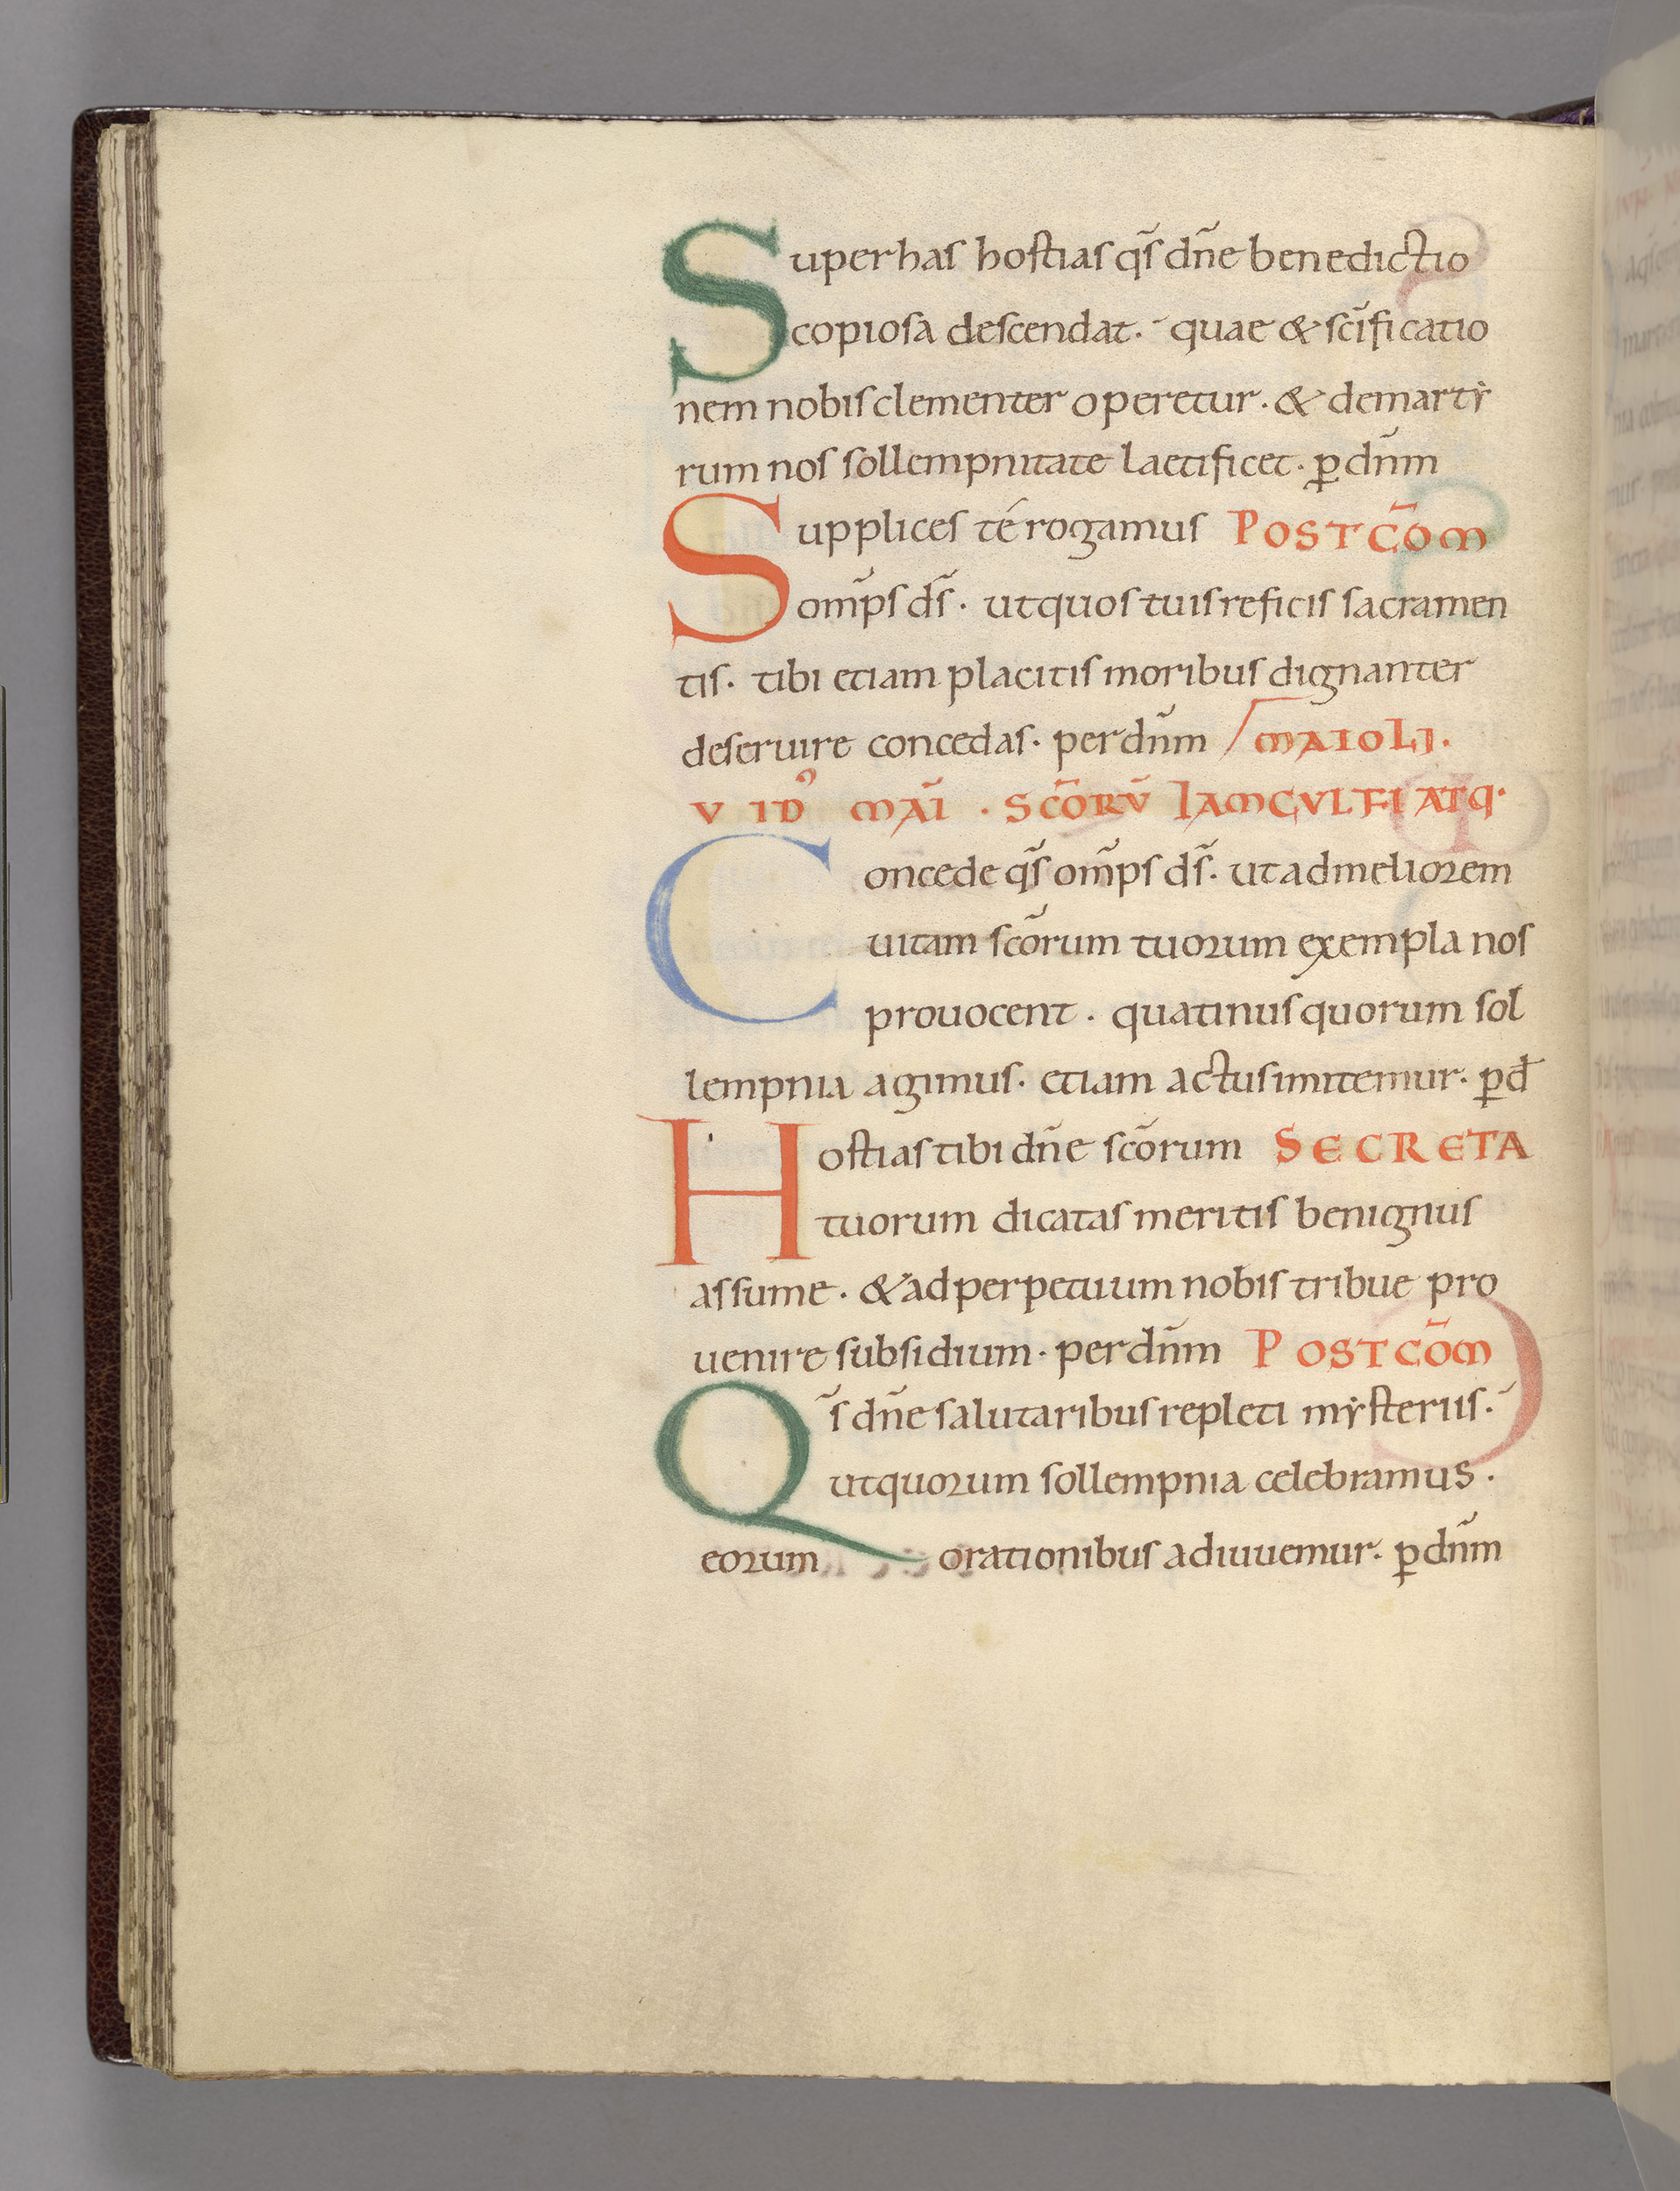 Super has hostias qs̃ dñe benedictio
copiosa descendat. quae & scĩficatio
nem nobis clementer operetur. & demartẏ
rum nos sollempnitate laetificet. ꝑ dñm
Supplices té rogamus POSTCŌM
om̃ps ds̃. ut quos tuis reficis sacramen
tis. tibi etiam placitis moribus dignanter
deseruire concedas. per dñm MAIOLI.
V ID' MAĪ. SCŌRŪ IAMGVLFI ATQ.
Concede qs̃ om̃ps ds̃. ut ad meliorem
uitam scõrum tuorum exempla nos
prouocent. quatinus quorum sol
lempnia agimus. etiam actus imitemur. ꝑ d̄
Hostias tibi dñe scõrum SECRETA
tuorum dicatas meritis benignus
assume. & ad perpetuum nobis tribue pro
uenire subsidium. per dñm POSTCŌM
Qs̃ dñe salutaribus repleti mẏsteriis.
ut quorum sollempnia celebramus.
eorum orationibus adiuuemur. ꝑ dñm